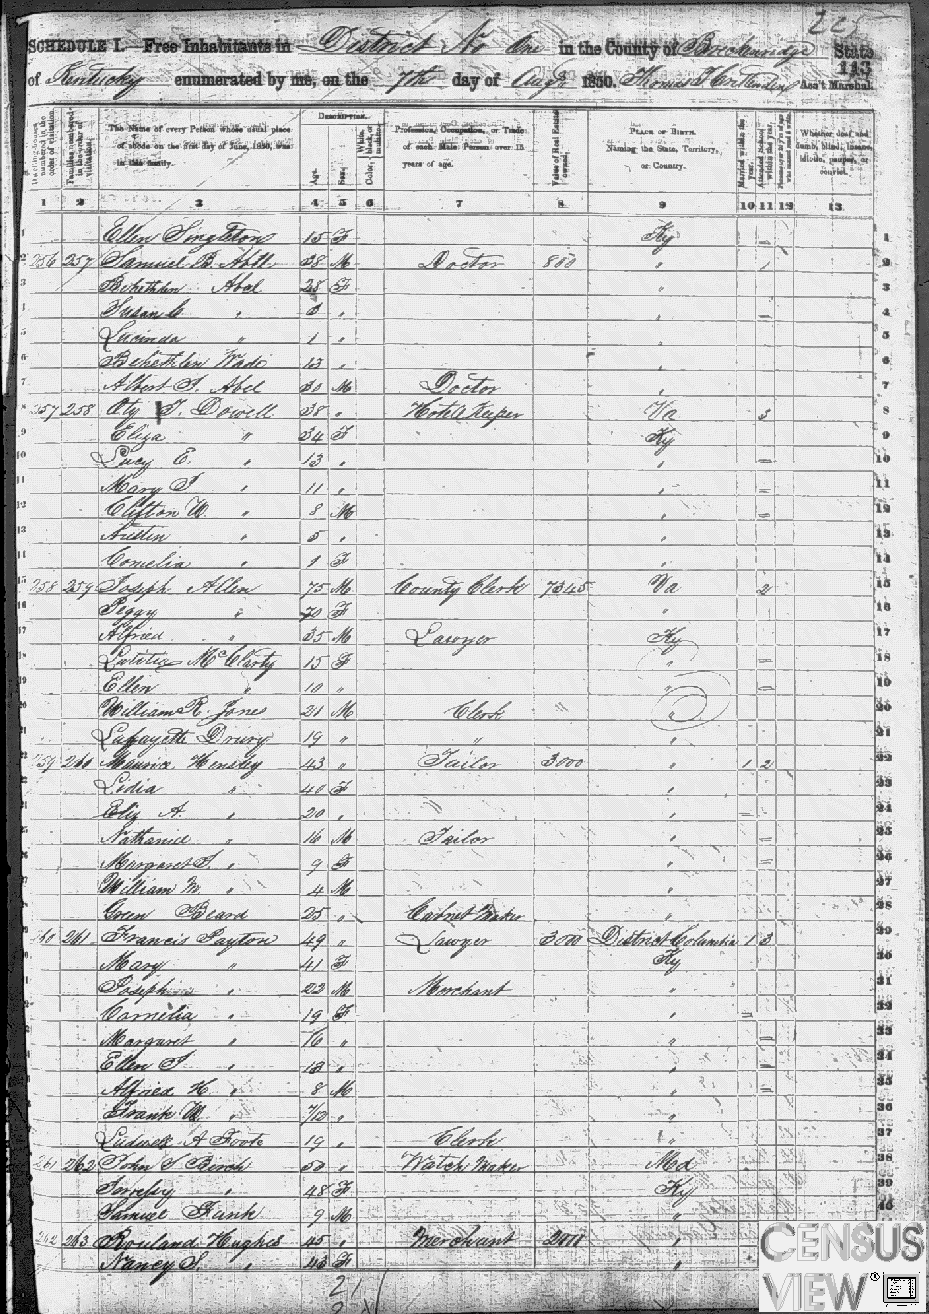 225
SCHEDULE I.—Free Inhabitants in District No One in the County of Breckenridge State
of Kentucky enumerated by me, on the 7th day of Augt 1850. Thomas J Crittenden Ass't Marshal.
113
Dwelling-houses numbered in the order of visitation.
Families numbered in the order of visitation.
The Name of every Person whose usual place of abode on the first day of June, 1850, was in this family.
DESCRIPTION.
Age.
Sex.
Color, White, black, or mulatto.
Profession, Occupation, or Trade of each Male Person over 15 years of age.
Value of Real Estate owned.
PLACE OF BIRTH. Naming the State, Territory, or Country.
Married within the year.
Attended School within the year.
Persons over 20 y'rs of age who cannot read & write.
Whether deaf and dumb, blind, insane, idiotic, pauper, or convict.
1 2 3 4 5 6 7 8 9 10 11 12 13
1 Ellen Singleton 15 F Ky 1
2 256 257 Samuel B. Abell 38 M Doctor 800 " 2
3 Abel 28 F " 3
4 Susan C " " 4
5 Lucinda " 1 " " 5
6 Wade 13 " " 6
7 Albert S. Abel 30 M Doctor " 7
8 257 258 T. Dowell 38 " Hotel Keeper Va 3 8
9 Eliza " 34 F Ky 9
10 Lucy E. " 13 " " 10
11 Mary T " 11 " " 11
12 Clifton W. " 8 M " 12
13 Austin " 5 " " 13
14 Cornelia " 1 F " 14
15 258 259 Joseph Allen 75 M County Clerk 7345 Va 2 15
16 Peggy " 70 F " 16
17 Alfred " 35 M Lawyer Ky 17
18 Letitia McClarty 15 F " 18
19 Ellen " 10 " " 19
20 William R. Jones 21 M Clerk " " 20
21 Lafayette Drury 19 " " " 21
22 259 260 Hensley 43 " Tailor 3000 " 1 2 22
23 Lidia " 40 F " 23
24 Eliz A. " 20 " " 24
25 Nathaniel " 16 M Tailor " 25
26 Margaret S. " 9 F " 26
27 William M. " 4 M " 27
28 Green Beard 25 " Cabnet Maker " 28
29 260 261 Francis Payton 49 " Lawyer 3000 District Columbia 1 3 29
30 Mary " 41 F Ky 30
31 Joseph " 22 M Merchant " 31
32 Cornelia " 19 F " 32
33 Margaret " 16 " " 33
34 Ellen " 13 " " 34
35 Alfred H. " 8 M " 35
36 Frank W. " 7/12 " " 36
37 A Foote 19 " Clerk " 37
38 261 262 John S Birch 50 " Watch Maker Md 38
39 " 48 F Ky 39
40 Samuel Hank 9 M " 40
262 263 Rowland Hughes 45 " Merchant 2000 "
Nancy S. " 43 F "
21
CENSUS
VIEW ®